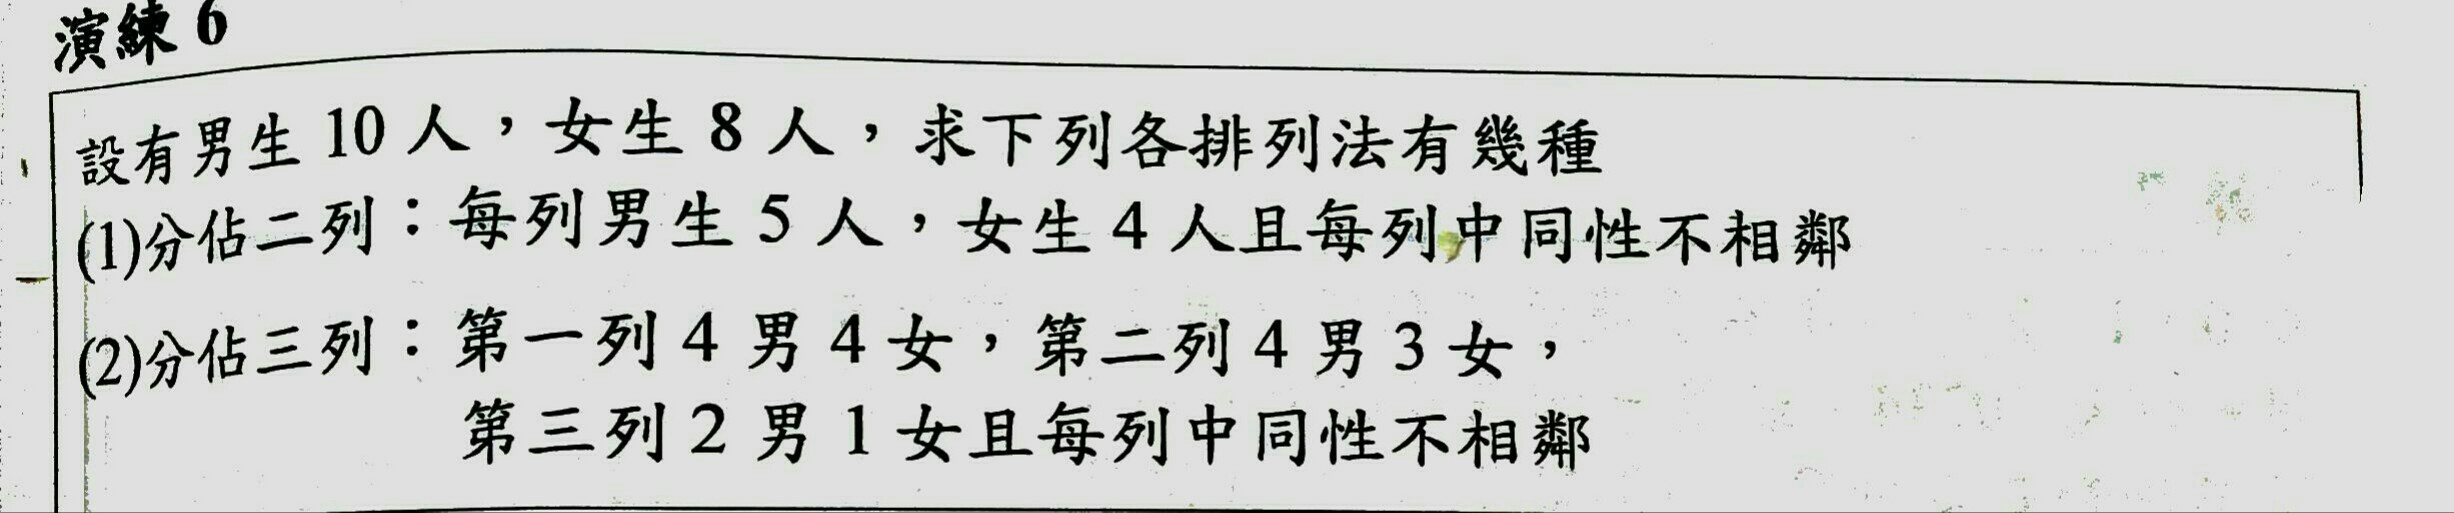 演練 6
設有男生 10 人，女生 8 人，求下列各排列法有幾種
(1)分佔二列：每列男生 5 人，女生 4 人且每列中同性不相鄰
(2)分佔三列：第一列 4 男 4 女，第二列 4 男 3 女，
第三列 2 男 1 女且每列中同性不相鄰